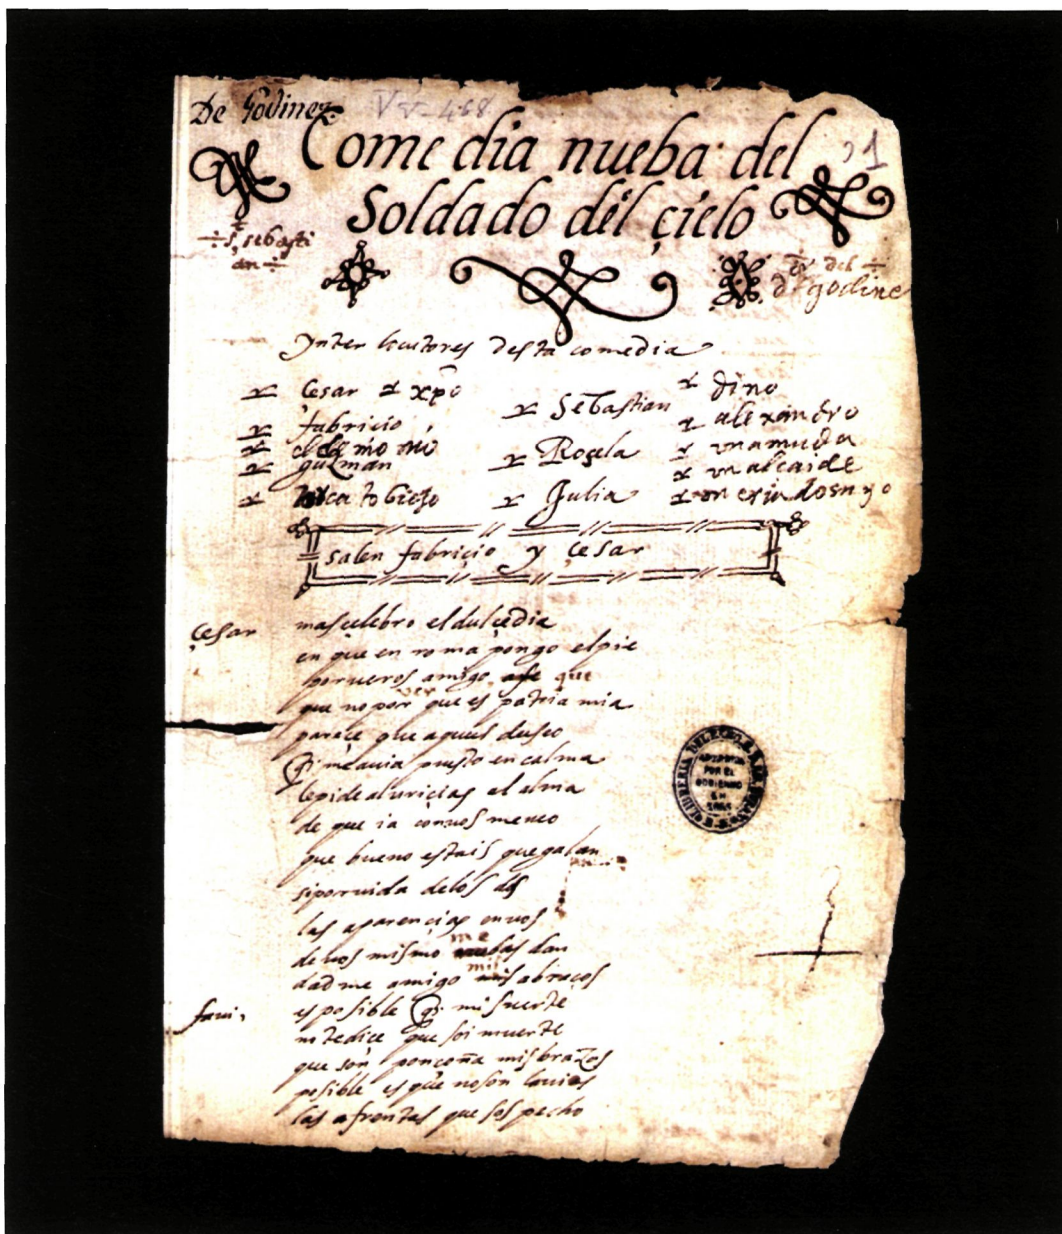 De Godinez.
Vv-468
Comedia nueba del
Soldado del çielo
1
S. sebasti
an
d. godine
Ynterlocutores desta comedia
Cesar xpo
fabricio
guzman
Sebastian
Rosela
Julia
dino
alexandro
un a muda
un alcaide
salen fabriçio y Çesar
Çesar
mas celebro el dulçe dia
en que en roma pongo el pie
por ueros amigo que
que no por ver que es patria mia
pareçe que aquel deseo
q. me auia puesto en calma
le pide aluriçias al alma
de que ia con uos me ueo
que bueno estais que galan
si por uida de los ds
las aparençias en uos
de uos mismo me dan
dadme amigo mis abraços
faui.
es posible q. mi suerte
no te dice que soi muerte
que son ponçoña mis brazos
posible es que no son
las afrentas que sospecho